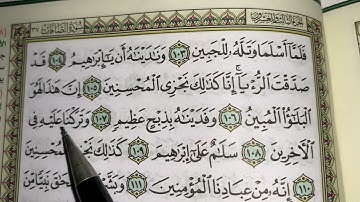 سُورَةُ الصَّافَّاتِ ٣٧
فَلَمَّا أَسْلَمَا وَتَلَّهُ لِلْجَبِينِ ١٠٣ وَنَٰدَيْنَٰهُ أَن يَٰٓإِبْرَٰهِيمُ ١٠٤ قَدْ
صَدَّقْتَ الرُّءْيَآ إِنَّا كَذَٰلِكَ نَجْزِي الْمُحْسِنِينَ ١٠٥ إِنَّ هَٰذَا لَهُوَ
الْبَلَٰٓؤُا الْمُبِينُ ١٠٦ وَفَدَيْنَٰهُ بِذِبْحٍ عَظِيمٍ ١٠٧ وَتَرَكْنَا عَلَيْهِ فِي
الْءَاخِرِينَ ١٠٨ سَلَٰمٌ عَلَىٰٓ إِبْرَٰهِيمَ ١٠٩ كَذَٰلِكَ نَجْزِي الْمُحْسِنِينَ
١١٠ إِنَّهُ مِنْ عِبَادِنَا الْمُؤْمِنِينَ ١١١ نَبِيًّا مِّنَ